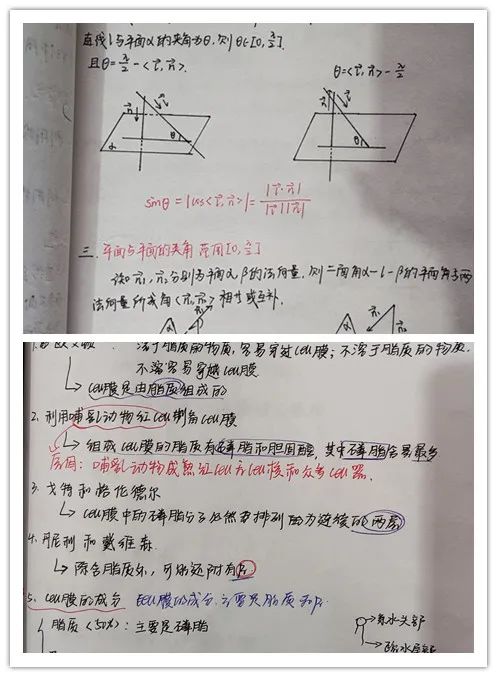 直线l与平面α的夹角为θ,则θ∈[0,π/2].
且θ=π/2-<l,n>.
θ=<l,n>-π/2
n l
n l
θ
α
θ
sinθ=|cos<l,n>|=|l·n|/|l||n|
三.平面与平面的夹角 范围[0,π/2]
设n₁,n₂分别为平面α,β的法向量,则二面角α-l-β的平面角与两
法向量所成角<n₁,n₂>相等或互补.
溶于脂质的物质,容易穿过cell膜;不溶于脂质的物质,
不溶容易穿越cell膜
↳cell膜是由脂质组成的
2.利用哺乳动物红cell制备cell膜
↳组成cell膜的脂质有磷脂和胆固醇,其中磷脂含量最多
原因:哺乳动物成熟红cell无cell核和众多cell器.
3.戈特和格伦德尔
↳cell膜中的磷脂分子必然为排列为连续的两层
4.丹尼利和戴维森.
↳除含脂质外,可能还附有Pr
5.cell膜的成分 cell膜的成分:主要是脂质和Pr
脂质(50%):主要是磷脂
亲水头部
疏水尾部